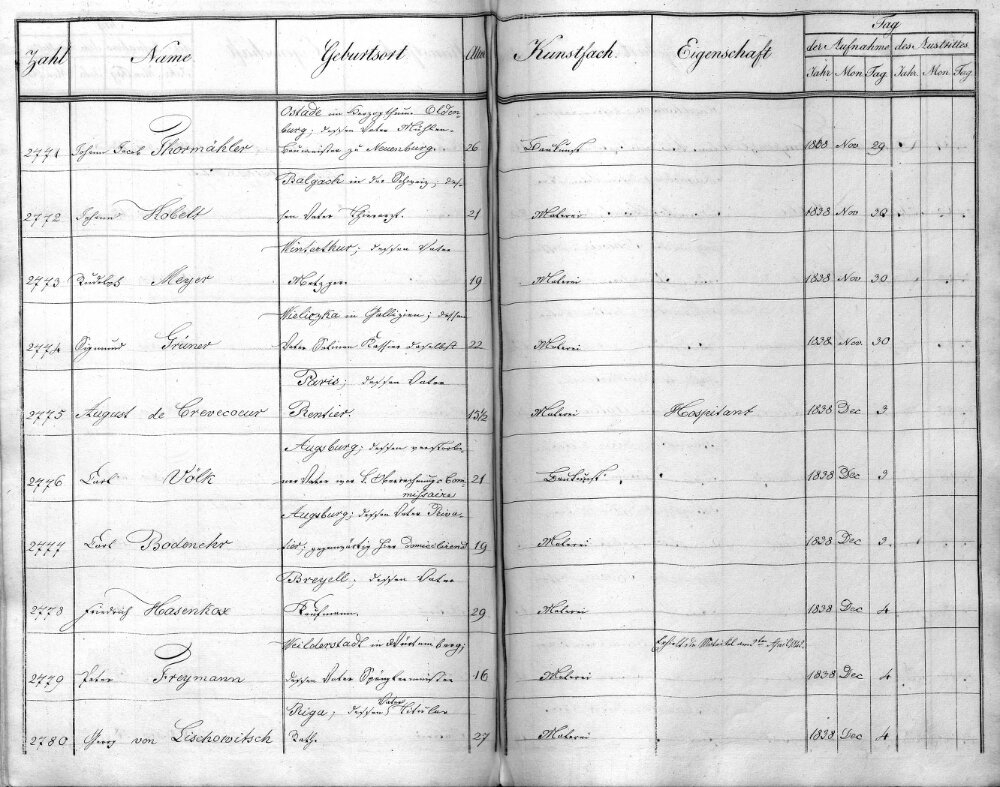 Zahl Name Geburtsort Alter Kunstfach. Eigenschaft Tag
der Aufnahme des Austrittes
Jahr Mon Tag Jahr. Mon Tag.
Ostade im Herzogthum Olden-
burg; dessen Vater Mühlen-
2771 Johann Jacob Thormähler baumeister zu Neuenburg. 26 Baukunst 1838 Nov 29
Balgach in der Schweiz; des-
2772 Johann Kobelt sen Vater Thierarzt. 21 Malerei 1838 Nov 30
Winterthur; dessen Vater
2773 Rudolph Meyer Metzger. 19 Malerei 1838 Nov 30
Wieliczka in Gallizien; dessen
2774 Sigmund Grüner Vater Salinen Kassier daselbst 22 Malerei 1838. Nov. 30
Paris; dessen Vater
2775 August de Crevecoeur Rentier. 15½ Malerei Hospitant 1838 Dec 3
Augsburg; dessen verstorbe-
2776 Carl Völk ner Vater war k. Oberrechnungs Com- 21 Baukunst 1838 Dec 3
missaire
Augsburg; dessen Vater Priva-
2777 Carl Bodenehr tier; gegenwärtig hier domicilirend 19 Malerei 1838 Dec 3.
Breyell; dessen Vater
2778 Friedrich Hasenkox Kaufmann. 29 Malerei 1838 Dec 4
Weilderstadt in Würtemberg; Erhielt die Matrikel am April
2779 Peter Freymann dessen Vater Spänglermeister 16 Malerei 1838 Dec 4
Riga; dessen Vater Titular
2780 Georg von Lischowitsch Rath. 27 Malerei 1838 Dec 4